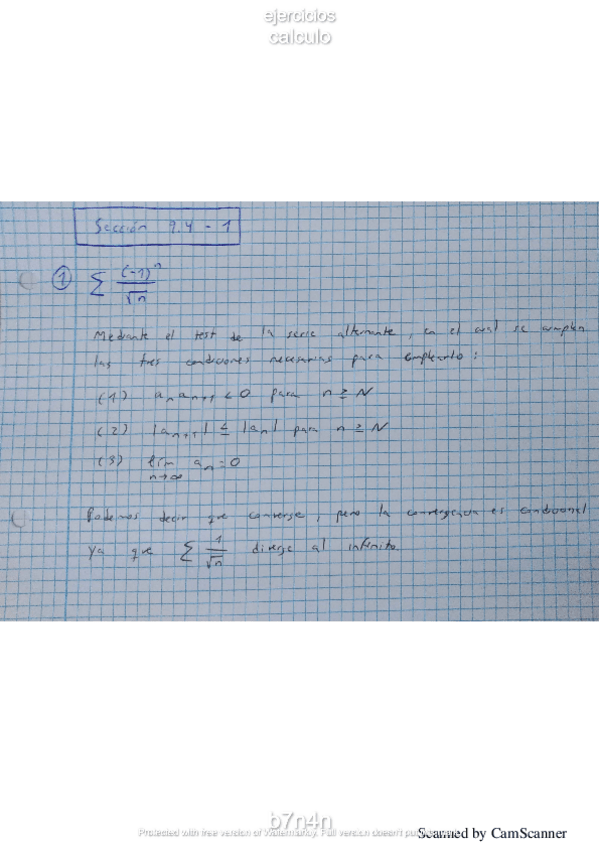 ejercicios
calculo
Sección 9.4 - 1
① ∑ (-1)ⁿ / √n
Mediante el test de la serie alternante, en el cual se cumplen
las tres condiciones necesarias para emplearlo:
(1) aₙ aₙ₊₁ < 0 para n ≥ N
(2) |aₙ₊₁| ≤ |aₙ| para n ≥ N
(3) lím n→∞ aₙ = 0
Podemos decir que converge, pero la convergencia es condicional
ya que ∑ 1/√n diverge al infinito.
b7n4n
Protected with free version of Watermarkly. Full version doesn't put
Scanned by CamScanner